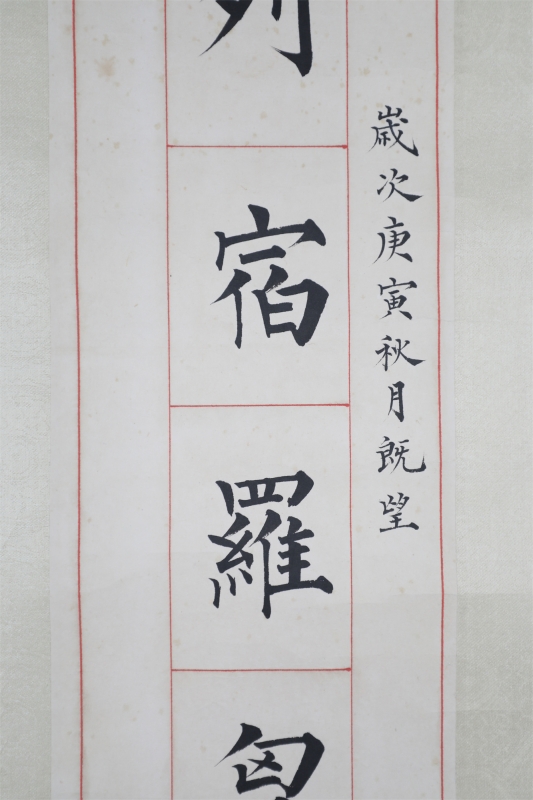 歲次庚寅秋月既望
列宿羅胸